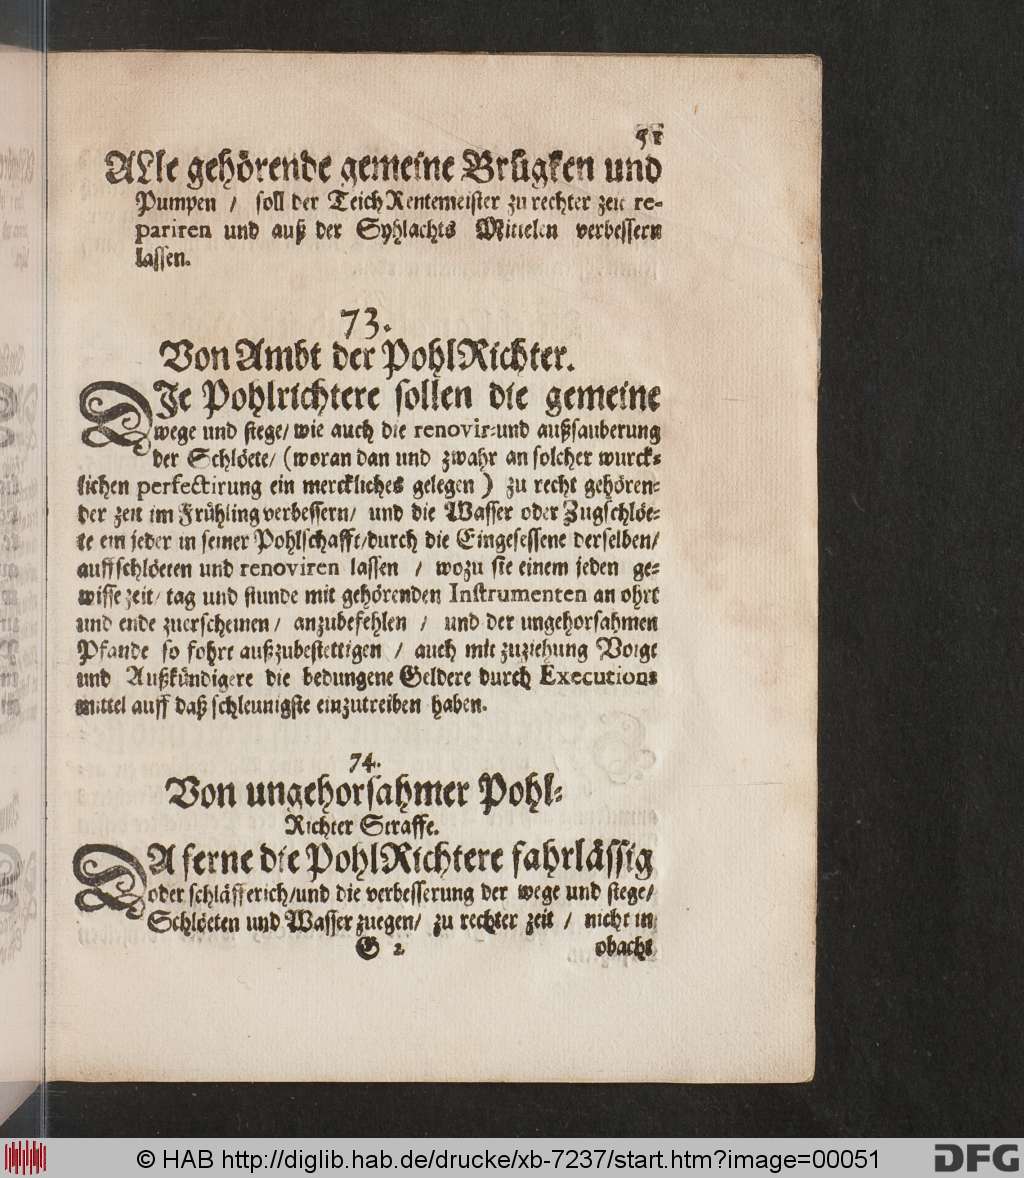 51
ALle gehörende gemeine Brügken und
Pumpen / soll der Teich Rentemeister zu rechter zeit re-
pariren und auß der Syhlachts Mittelen verbessern
lassen.
73.
Von Ambt der PohlRichter.
DIe Pohlrichtere sollen die gemeine
wege und stege/ wie auch die renovir-und außsauberung
der Schlöete/ (woran dan und zwahr an solcher wurck-
lichen perfectirung ein merckliches gelegen) zu recht gehören-
der zeit im Frühling verbessern/ und die Wasser oder Zugschlöe-
te ein jeder in seiner Pohlschafft/durch die Eingesessene derselben/
auffschlöeten und renoviren lassen / wozu sie einem jeden ge-
wisse zeit/ tag und stunde mit gehörenden Instrumenten an ohrt
und ende zuerscheinen/ anzubefehlen / und der ungehorsahmen
Pfande so fohrt außzubestettigen / auch mit zuziehung Voigt
und Außkündigere die bedungene Geldere durch Executions
mittel auff daß schleunigste einzutreiben haben.
74.
Von ungehorsahmer Pohl-
Richter Straffe.
DA ferne die PohlRichtere fahrlässig
oder schläfferich/und die verbesserung der wege und stege/
Schlöeten und Wasser zuegen/ zu rechter zeit / nicht in
G 2 obacht
© HAB http://diglib.hab.de/drucke/xb-7237/start.htm?image=00051
DFG